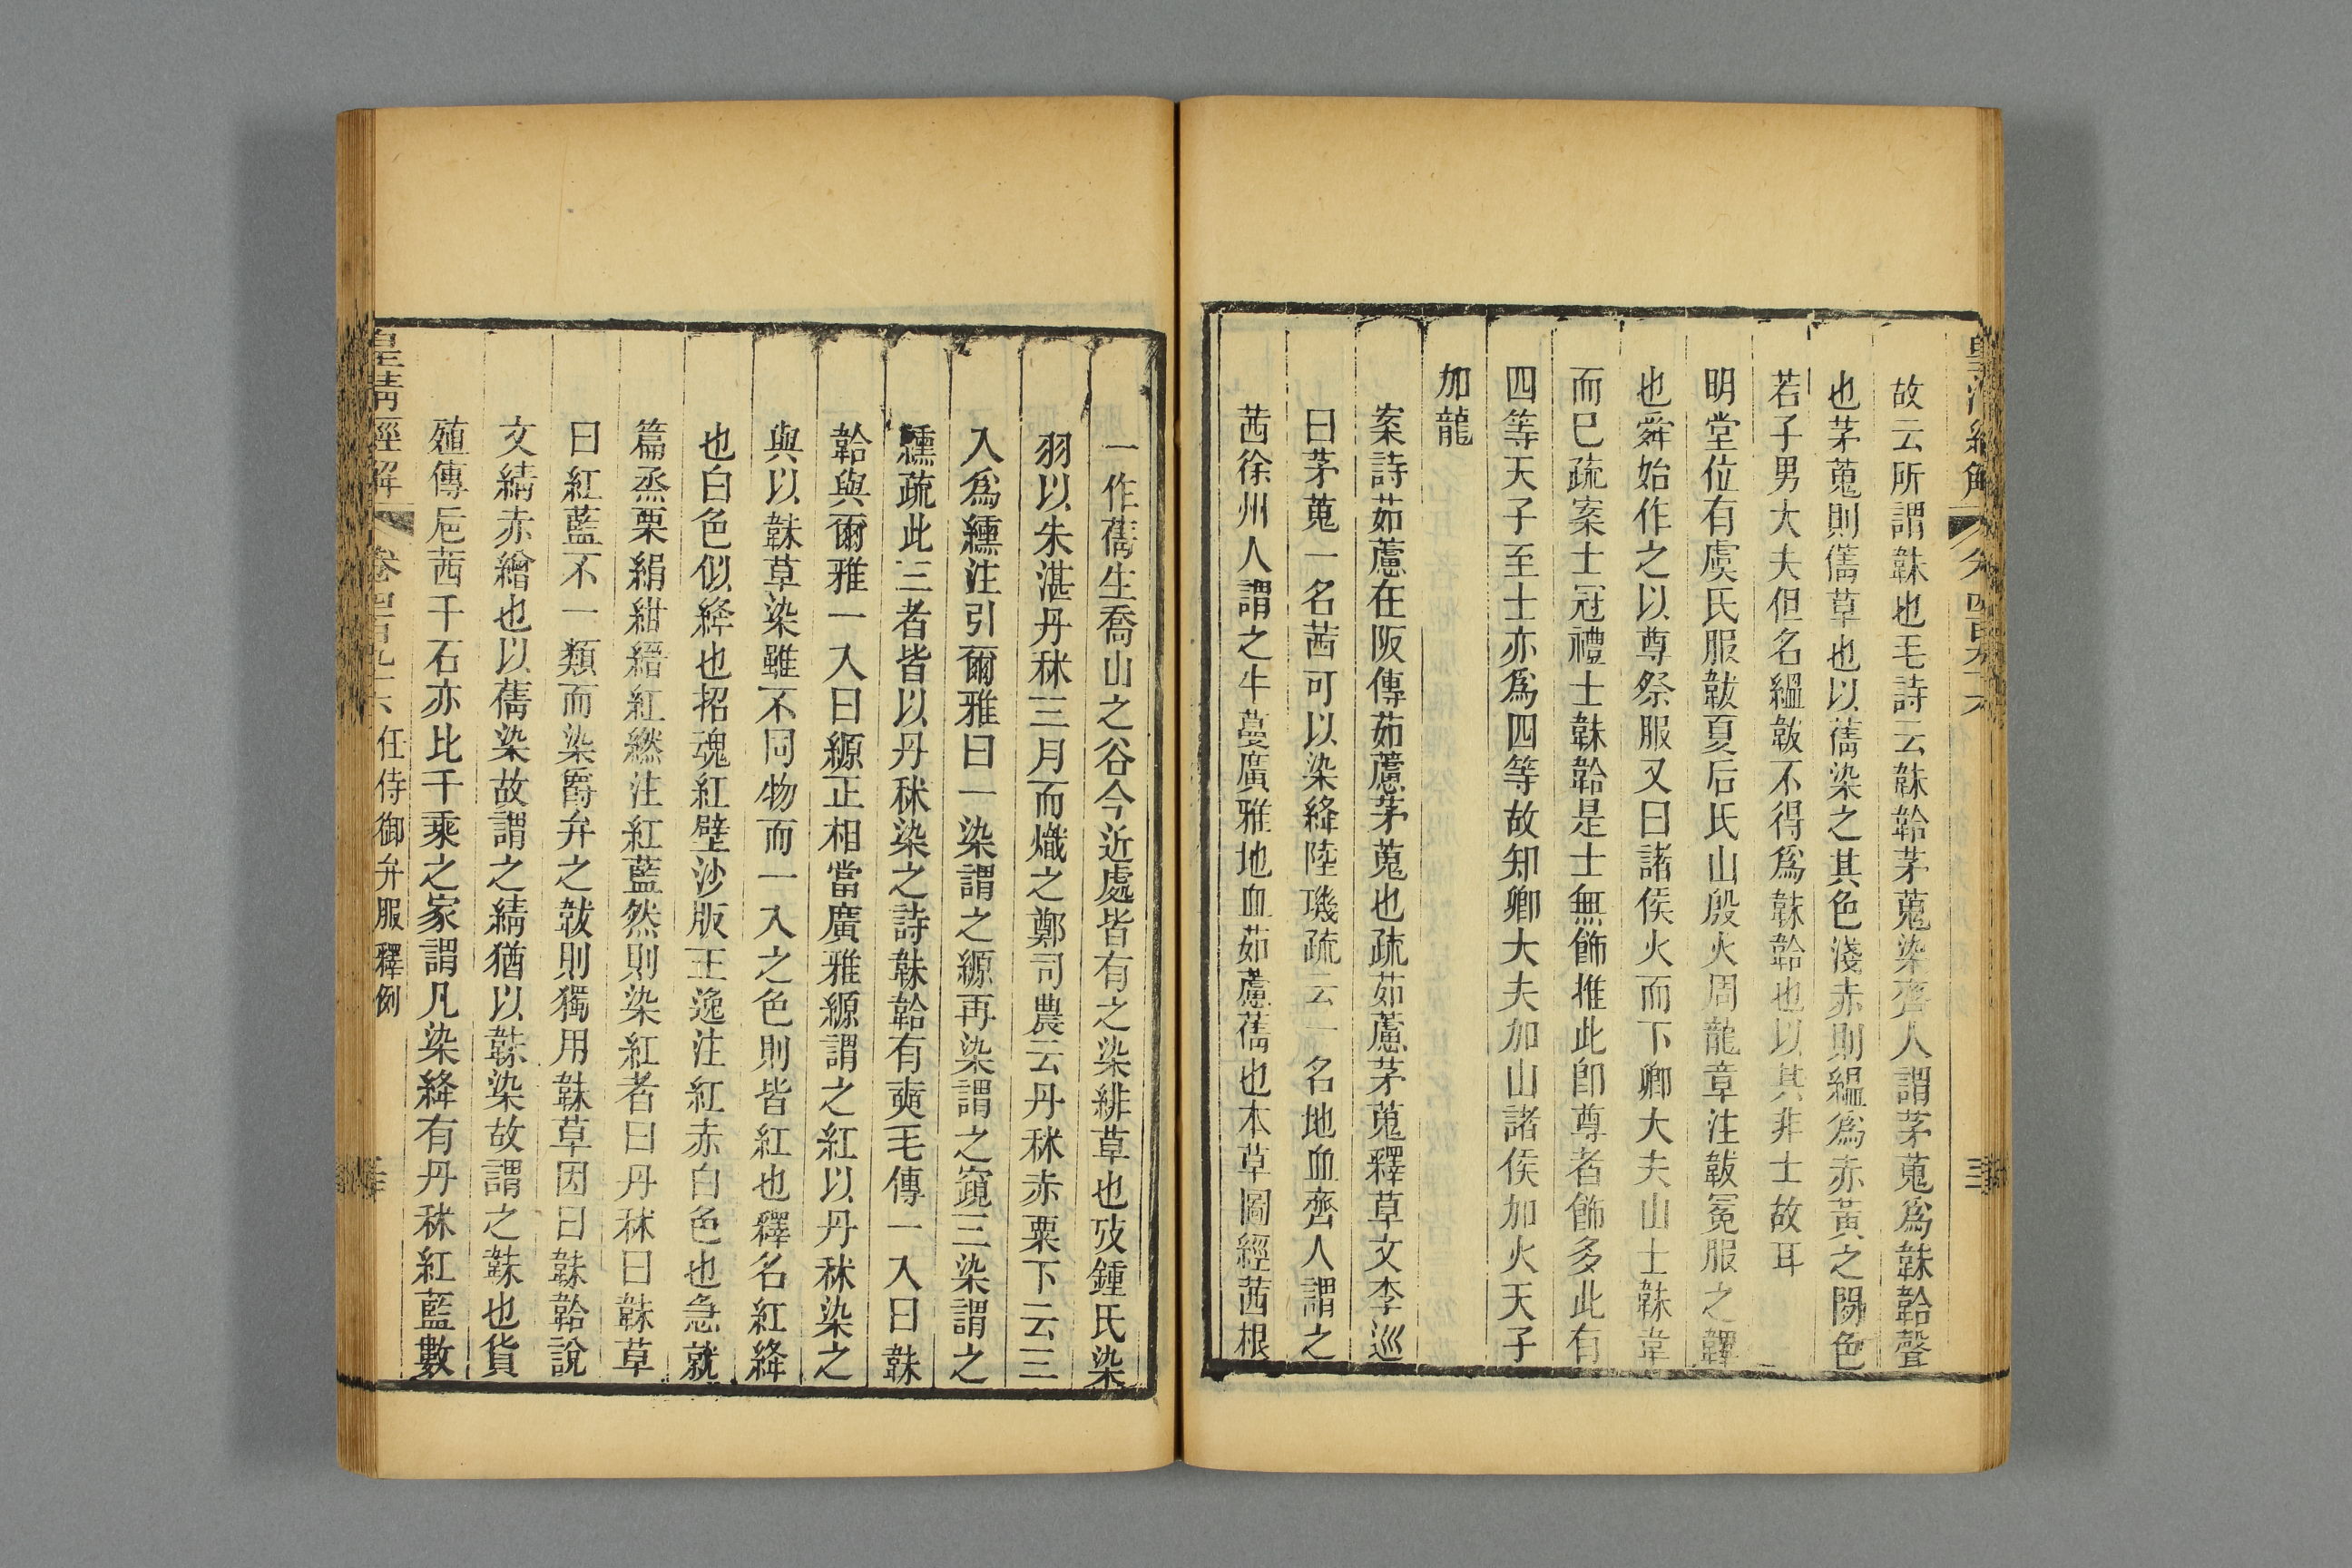 皇清經解
卷四百九十六
故云所謂韎也毛詩云韎韐茅蒐染齊人謂茅蒐爲韎韐聲
也茅蒐則蒨草也以蒨染之其色淺赤則縕爲赤黃之閒色
若子男大夫但名縕韍不得爲韎韐也以其非士故耳
明堂位有虞氏服韍夏后氏山殷火周龍章注韍冕服之韠
也舜始作之以尊祭服又曰諸侯火而下卿大夫山士韎韋
而已疏案士冠禮士韎韐是士無飾推此卽尊者飾多此有
四等天子至士亦爲四等故知卿大夫加山諸侯加火天子
加龍
案詩茹藘在阪傳茹藘茅蒐也疏茹藘茅蒐釋草文李巡
曰茅蒐一名茜可以染絳陸璣疏云一名地血齊人謂之
茜徐州人謂之牛蔓廣雅地血茹藘蒨也本草圖經茜根
一作蒨生喬山之谷今近處皆有之染緋草也攷鍾氏染
羽以朱湛丹秫三月而熾之鄭司農云丹秫赤粟下云三
入爲纁注引爾雅曰一染謂之縓再染謂之竀三染謂之
纁疏此三者皆以丹秫染之詩韎韐有奭毛傳一入曰韎
韐與爾雅一入曰縓正相當廣雅縓謂之紅以丹秫染之
與以韎草染雖不同物而一入之色則皆紅也釋名紅絳
也白色似絳也招魂紅壁沙版王逸注紅赤白色也急就
篇烝栗絹紺縉紅繎注紅藍然則染紅者曰丹秫曰韎草
曰紅藍不一類而染爵弁之韍則獨用韎草因曰韎韐說
文綪赤繒也以蒨染故謂之綪猶以韎染故謂之韎也貨
殖傳巵茜千石亦比千乘之家謂凡染絳有丹秫紅藍數
皇清經解
卷四百九十六 任侍御弁服釋例